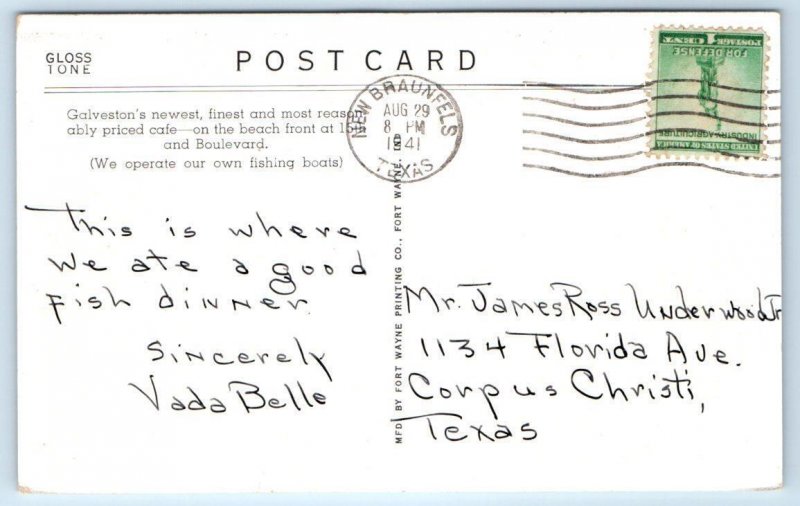 GLOSS
TONE
POST CARD
Galveston's newest, finest and most reason-
ably priced cafe—on the beach front at 15th
and Boulevard.
(We operate our own fishing boats)
NEW BRAUNFELS
AUG 29
8 PM
1941
TEXAS
1 CENT 1
POSTAGE
FOR DEFENSE
INDUSTRY-AGRICULTURE
UNITED STATES OF AMERICA
MFD BY FORT WAYNE PRINTING CO., FORT WAYNE, IND
This is where
we ate a good
fish dinner.
Sincerely
Vada Belle
Mr. James Ross Underwood Jr
1134 Florida Ave.
Corpus Christi,
Texas